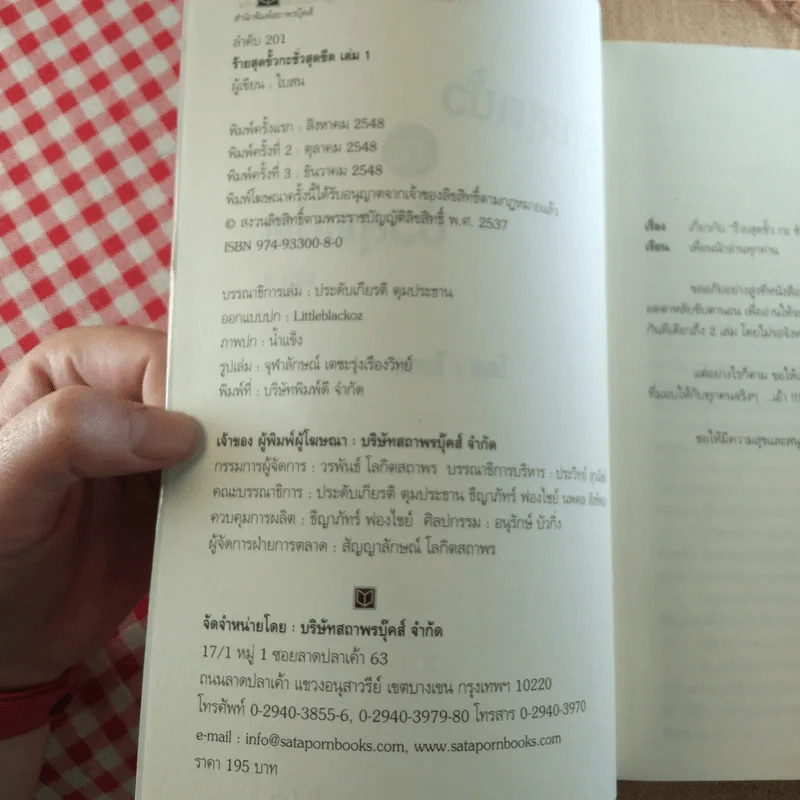 สำนักพิมพ์สถาพรบุ๊คส์
ลำดับ 201
ร้ายสุดขั้วกะชั่วสุดขีด เล่ม 1
ผู้เขียน : ใบสน
พิมพ์ครั้งแรก : สิงหาคม 2548
พิมพ์ครั้งที่ 2 : ตุลาคม 2548
พิมพ์ครั้งที่ 3 : ธันวาคม 2548
พิมพ์โฆษณาครั้งนี้ได้รับอนุญาตจากเจ้าของลิขสิทธิ์ตามกฎหมายแล้ว
© สงวนลิขสิทธิ์ตามพระราชบัญญัติลิขสิทธิ์ พ.ศ. 2537
ISBN 974-93300-8-0
บรรณาธิการเล่ม : ประดับเกียรติ ตุมประธาน
ออกแบบปก : Littleblackoz
ภาพปก : น้ำแข็ง
รูปเล่ม : จุฬาลักษณ์ เตชะรุ่งเรืองวิทย์
พิมพ์ที่ : บริษัทพิมพ์ดี จำกัด
เจ้าของ ผู้พิมพ์ผู้โฆษณา : บริษัทสถาพรบุ๊คส์ จำกัด
กรรมการผู้จัดการ : วรพันธ์ โลกิตสถาพร บรรณาธิการบริหาร : ประวิทย์
คณะบรรณาธิการ : ประดับเกียรติ ตุมประธาน ธีญาภัทร์ ฟองไชย์ นพดล
ควบคุมการผลิต : ธีญาภัทร์ ฟองไชย์ ศิลปกรรม : อนุรักษ์ บัวกิ่ง
ผู้จัดการฝ่ายการตลาด : สัญญาลักษณ์ โลกิตสถาพร
จัดจำหน่ายโดย : บริษัทสถาพรบุ๊คส์ จำกัด
17/1 หมู่ 1 ซอยลาดปลาเค้า 63
ถนนลาดปลาเค้า แขวงอนุสาวรีย์ เขตบางเขน กรุงเทพฯ 10220
โทรศัพท์ 0-2940-3855-6, 0-2940-3979-80 โทรสาร 0-2940-3970
e-mail : info@satapornbooks.com, www.satapornbooks.com
ราคา 195 บาท
เรื่อง เกี่ยวกับ "ร้ายสุดขั้ว กะ
เรียน เพื่อนนักอ่านทุกท่าน
ขออภัยอย่างสูงที่หนังสือ
กันทีเดียวถึง 2 เล่ม โดยไม่รอจังห
แต่อย่างไรก็ตาม ขอให้
ที่มอบให้กับทุกคนจริงๆ ...เอ้า !!!
ขอให้มีความสุขและสนุ